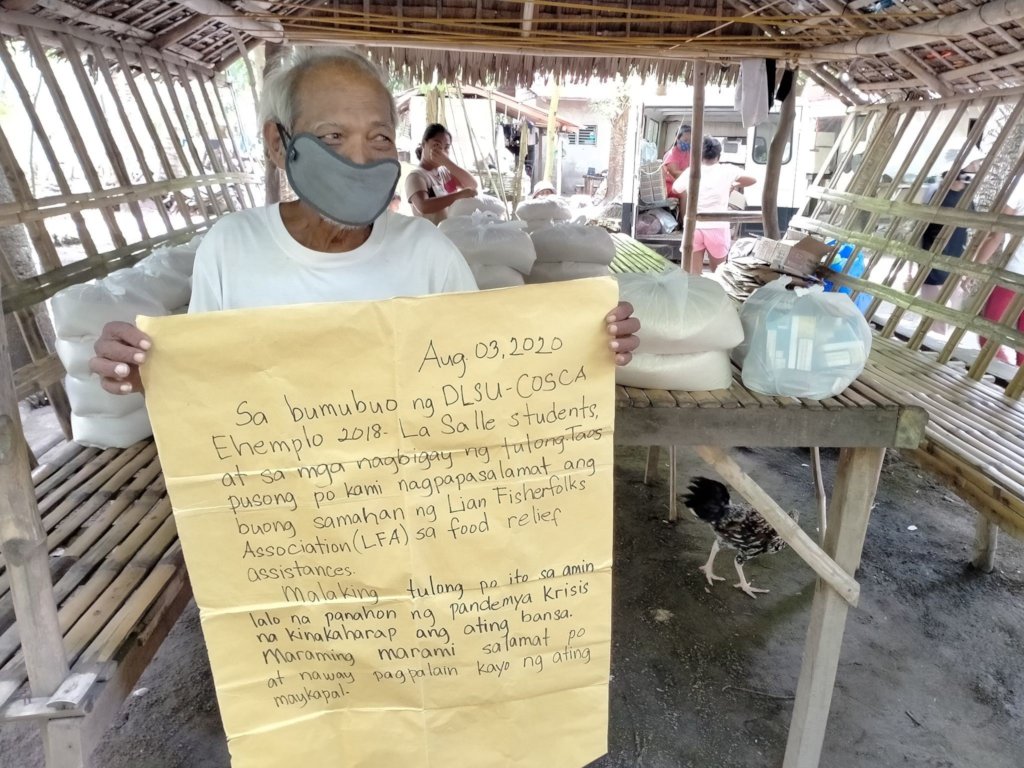 Aug. 03, 2020
Sa bumubuo ng DLSU-COSCA
Ehemplo 2018- La Salle students,
at sa mga nagbigay ng tulong. Taos
pusong po kami nagpapasalamat ang
buong samahan ng Lian Fisherfolks
Association (LFA) sa food relief
assistances.
Malaking tulong po ito sa amin
lalo na panahon ng pandemya krisis
na kinakaharap ang ating bansa.
Maraming marami salamat po
at naway pagpalain kayo ng ating
maykapal.